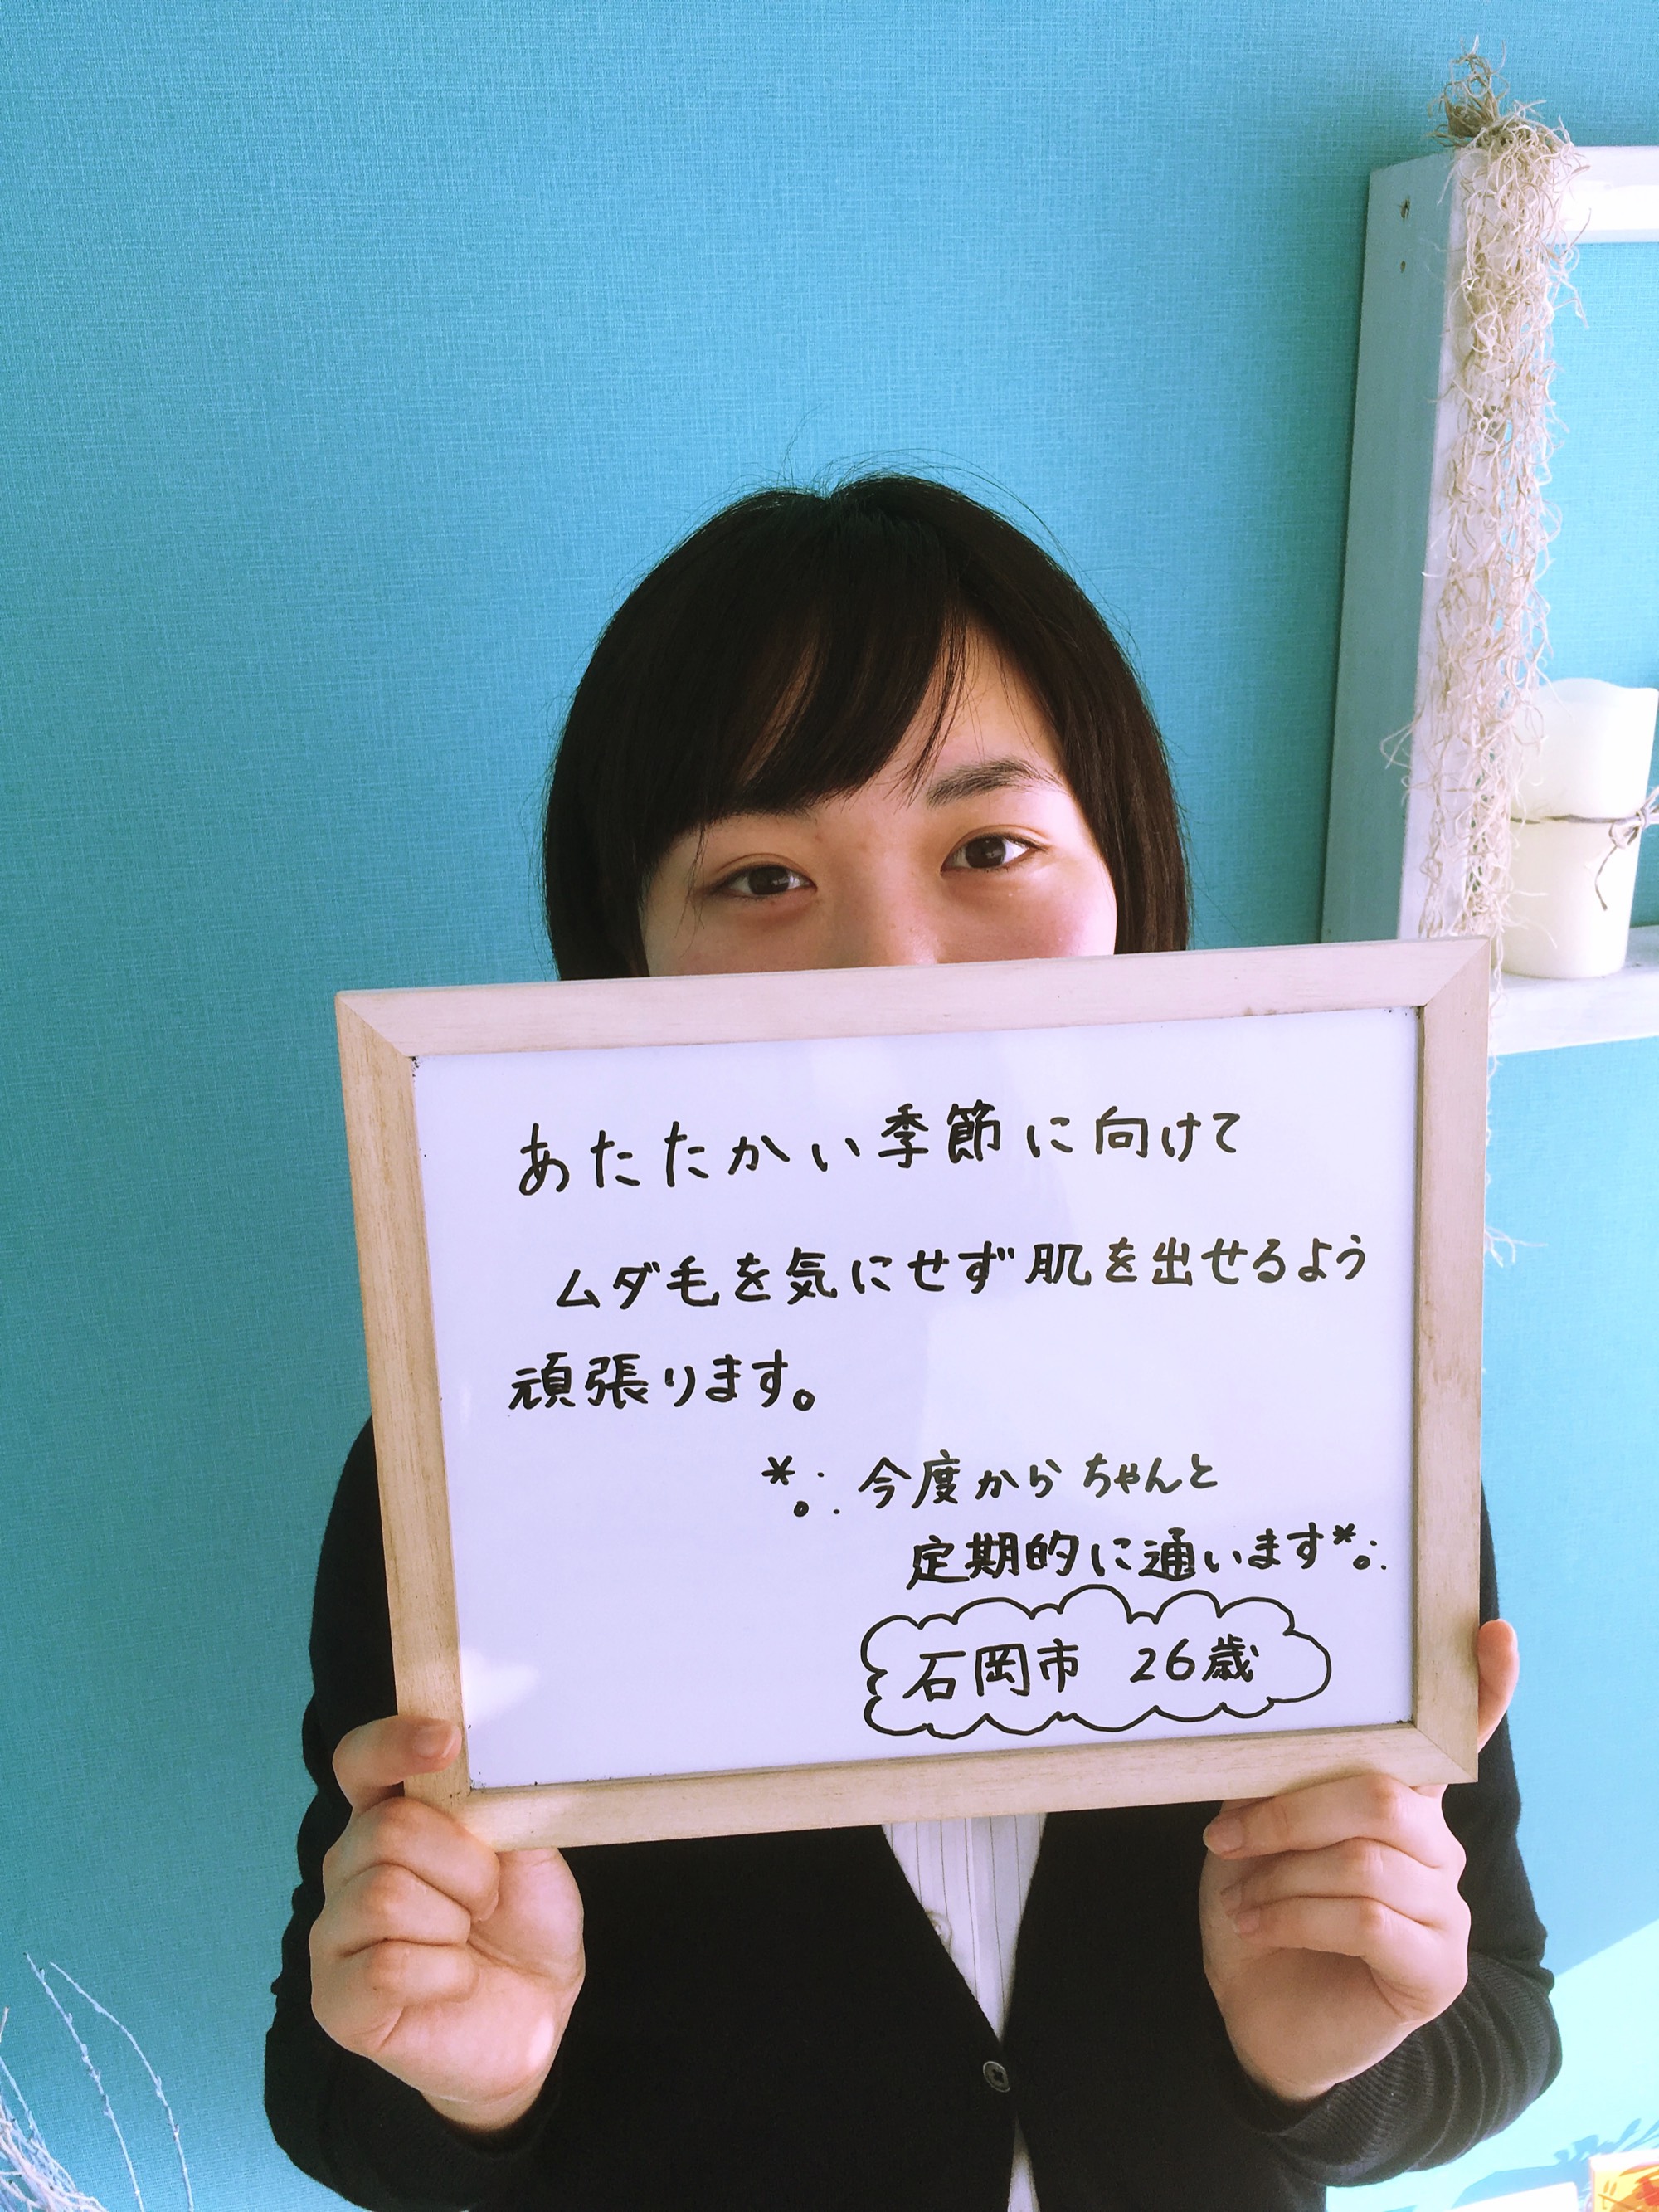 あたたかい季節に向けて
ムダ毛を気にせず肌を出せるよう
頑張ります。
今度からちゃんと
定期的に通います
石岡市 26歳